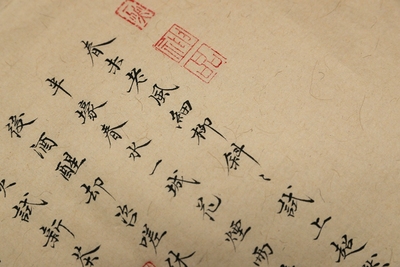 春未老風細柳斜〻試上超
半壕春水一城花煙雨
後酒醒却咨嗟休
試新茶